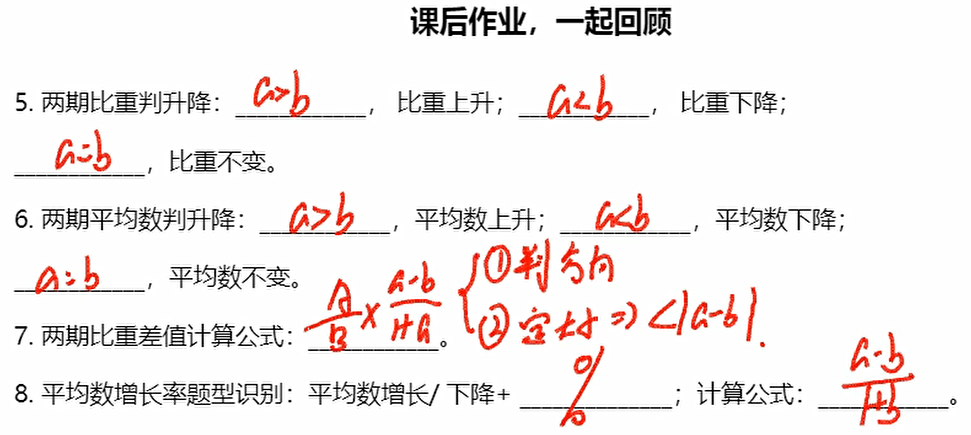 课后作业，一起回顾
5. 两期比重判升降：a>b，比重上升；a<b，比重下降；
a=b，比重不变。
6. 两期平均数判升降：a>b，平均数上升；a<b，平均数下降；
a=b，平均数不变。
①判方向
7. 两期比重差值计算公式：A/B×(a-b)/(1+a)。②定大小⇒<|a-b|.
8. 平均数增长率题型识别：平均数增长/ 下降+ %；计算公式：(a-b)/(1+b)。